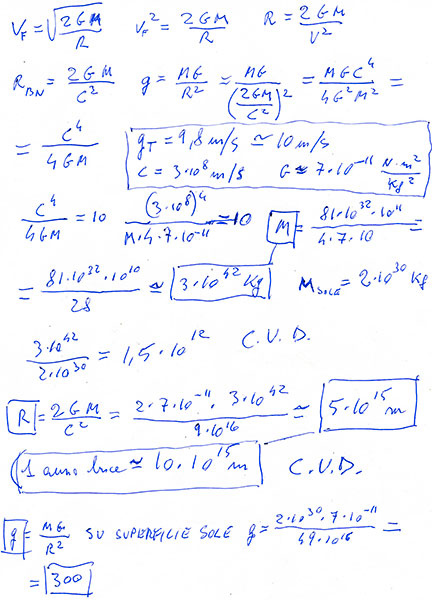 V_F = √(2GM/R)   V_F² = 2GM/R   R = 2GM/V²
R_BN = 2GM/C²   g = MG/R² = MG/(2GM/C²)² = MGC⁴/4G²M² =
= C⁴/4GM
g_T = 9,8 m/s ≃ 10 m/s
C = 3·10⁸ m/s   G ≃ 7·10⁻¹¹ N·m²/Kg²
C⁴/4GM = 10   (3·10⁸)⁴/M·4·7·10⁻¹¹ = 10   M = 81·10³²·10¹¹/4·7·10 =
= 81·10³²·10¹⁰/28 ≃ 3·10⁴² Kg   M_SOLE = 2·10³⁰ Kg
3·10⁴²/2·10³⁰ = 1,5·10¹²   C.V.D.
R = 2GM/C² = 2·7·10⁻¹¹·3·10⁴²/9·10¹⁶ ≃ 5·10¹⁵ m
1 anno luce ≃ 10·10¹⁵ m   C.V.D.
g = MG/R² SU SUPERFICIE SOLE g = 2·10³⁰·7·10⁻¹¹/49·10¹⁶ =
= 300